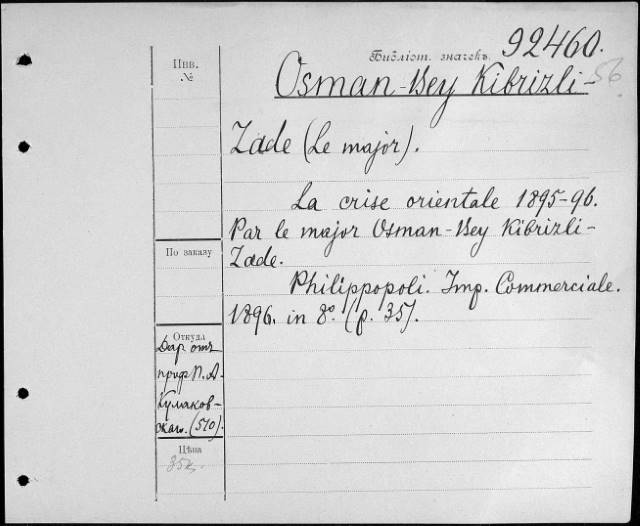 Библіот. значекъ 92460.
56
Инв.
№
Osman-Bey Kibrizli-
Zade (Le major).
La crise orientale 1895-96.
Par le major Osman-Bey Kibrizli-
Zade.
Philippopoli. Imp. Commerciale.
1896. in 8º. (p. 35).
По заказу
Откуда
Даръ отъ
проф. П. А.
Кулаков-
скаго. (510).
Цѣна
35к.